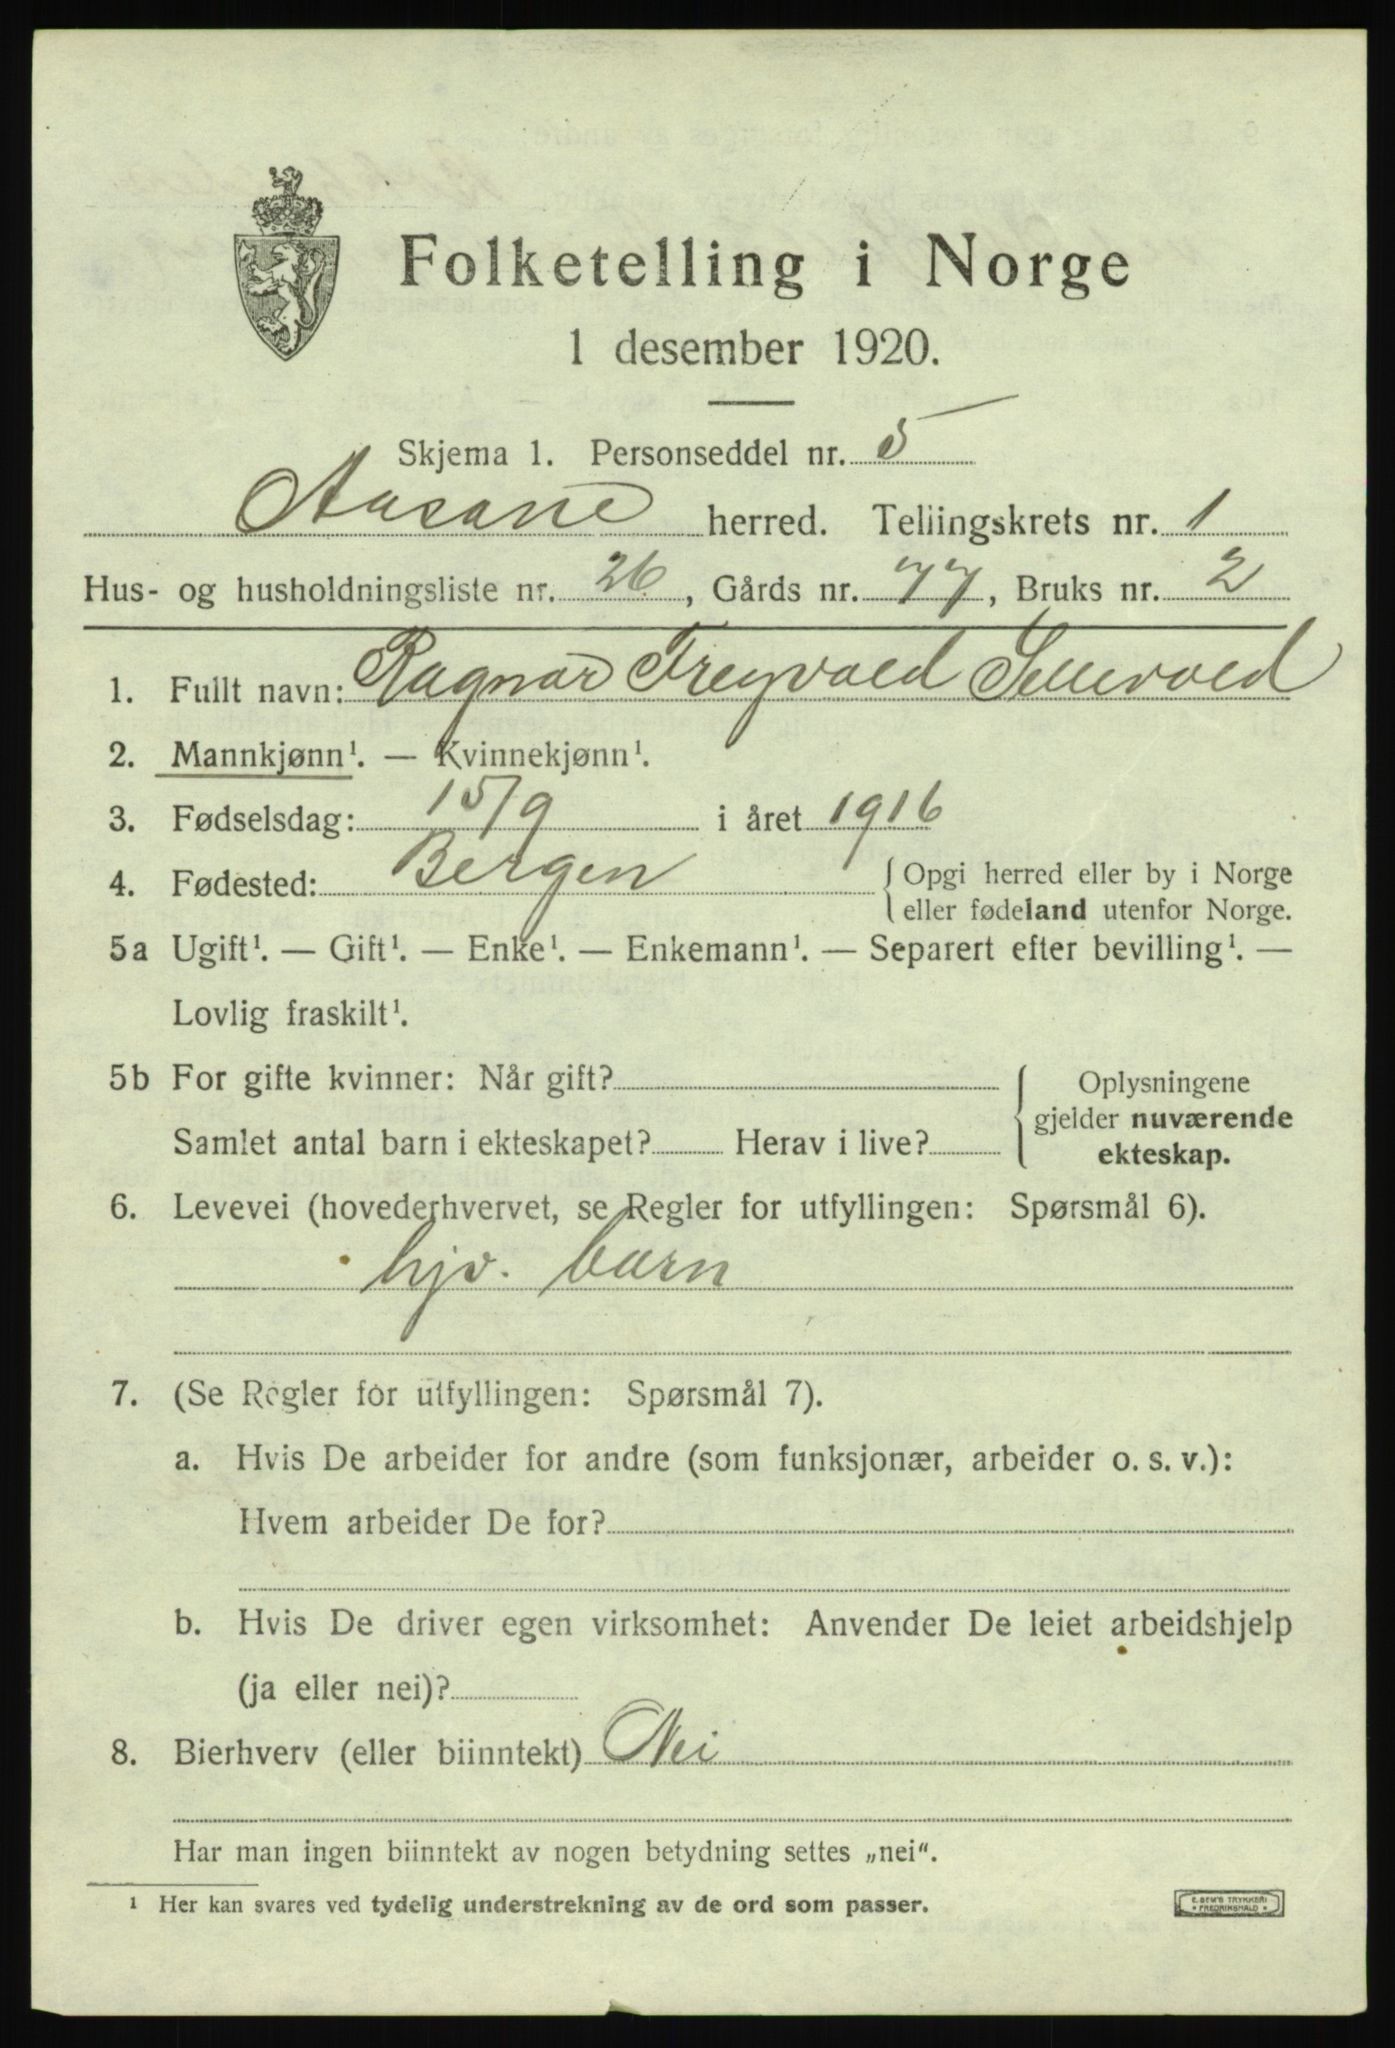 Folketelling i Norge
1 desember 1920.
Skjema 1. Personseddel nr. 5
Aasane herred. Tellingskrets nr. 1
Hus- og husholdningsliste nr. 26, Gårds nr. 77, Bruks nr. 2
1. Fullt navn: Ragnar Freyvald Sellevold
2. Mannkjønn¹. — Kvinnekjønn¹.
3. Fødselsdag: 15/9 i året 1916
4. Fødested: Bergen { Opgi herred eller by i Norge
eller fødeland utenfor Norge.
5a Ugift¹. — Gift¹. — Enke¹. — Enkemann¹. — Separert efter bevilling¹. —
Lovlig fraskilt¹.
5b For gifte kvinner: Når gift? { Oplysningene
gjelder nuværende
Samlet antal barn i ekteskapet? Herav i live? ekteskap.
6. Levevei (hovederhvervet, se Regler for utfyllingen: Spørsmål 6).
hjv. barn
7. (Se Regler for utfyllingen: Spørsmål 7).
a. Hvis De arbeider for andre (som funksjonær, arbeider o. s. v.):
Hvem arbeider De for?
b. Hvis De driver egen virksomhet: Anvender De leiet arbeidshjelp
(ja eller nei)?
8. Bierhverv (eller biinntekt) Nei
Har man ingen biinntekt av nogen betydning settes „nei“.
¹ Her kan svares ved tydelig understrekning av de ord som passer.
E. SEM'S TRYKKERI
* FREDRIKSHALD *